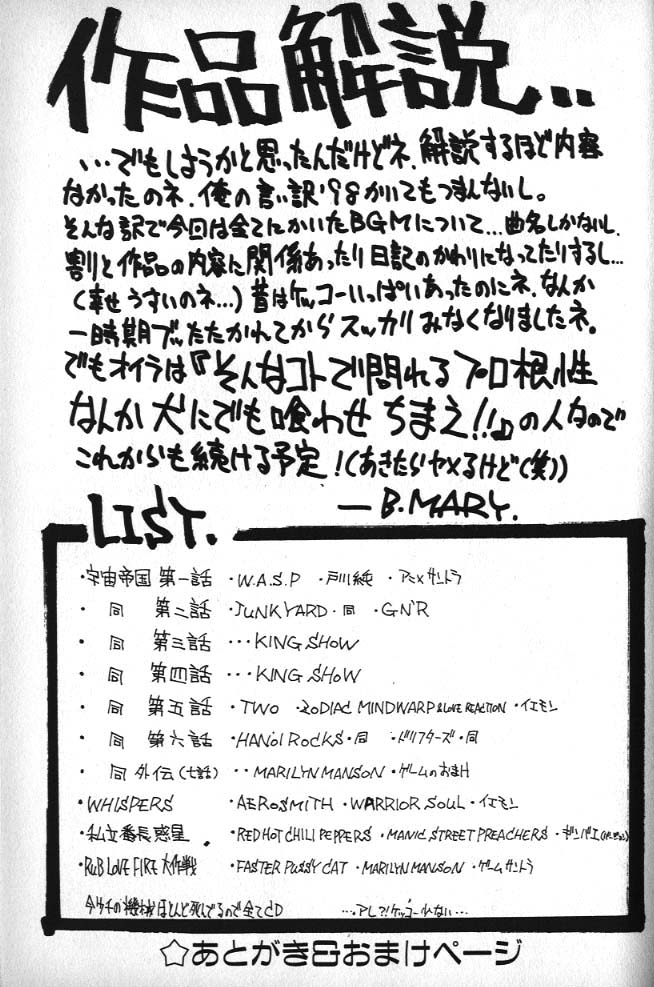 作品解説..
...でもしようかと思ったんだけどネ、解説するほど内容
なかったのネ、俺の言い訳'98かいてもつまんないし。
そんな訳で今回は全てにかいたBGMについて...曲名しかないし、
割と作品の内容に関係あったり日記のかわりになってたりするし...
(幸せうすいのネ...)昔はケッコーいっぱいあったのにネ、なんか
一時期ブッたたかれてからスッカリみなくなりましたネ。
でもオイラは『そんなコトで問れるプロ根性
なんか犬にでも喰わせちまえ!!』の人なので
これからも続ける予定!(あきたらヤメるけど(笑))
—B.MARY.
LIST.
・宇宙帝国 第一話 ・W.A.S.P ・戸川純 ・アニメサントラ
・ 同 第二話 ・JUNKYARD ・同 ・GN'R
・ 同 第三話 ...KING SHOW
・ 同 第四話 ...KING SHOW
・ 同 第五話 ・TWO ・ZODIAC MINDWARP & LOVE REACTION ・イエモン
・ 同 第六話 ・HANOI ROCKS ・同 ・ドリフターズ ・同
・ 同 外伝(七話) ・・MARILYN MANSON ・ゲームのおまけ
・WHISPERS ・AEROSMITH ・WARRIOR SOUL ・イエモン
・私立番長惑星. ・RED HOT CHILI PEPPERS ・MANIC STREET PREACHERS ・ギンバエ
・RUB LOVE FIRE大作戦 ・FASTER PUSSY CAT ・MARILYN MANSON ・ゲームサントラ
今ウチの機械ほとんど死んでるので全てCD ...アレ?!ケッコー少ない...
☆あとがき&おまけページ